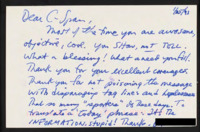 Dear C-Span,
Most of the time you are awesome,
objective, cool. You SHOW, not TELL.
What a blessing! What areal youfill!
Thank you for your excellent coverage.
Thank you for not poisoning the message
with disparaging tag lines and
that so many "reporters" do these days. To
translate a today phrase: It's the
INFORMATION, stupid! Thanks.